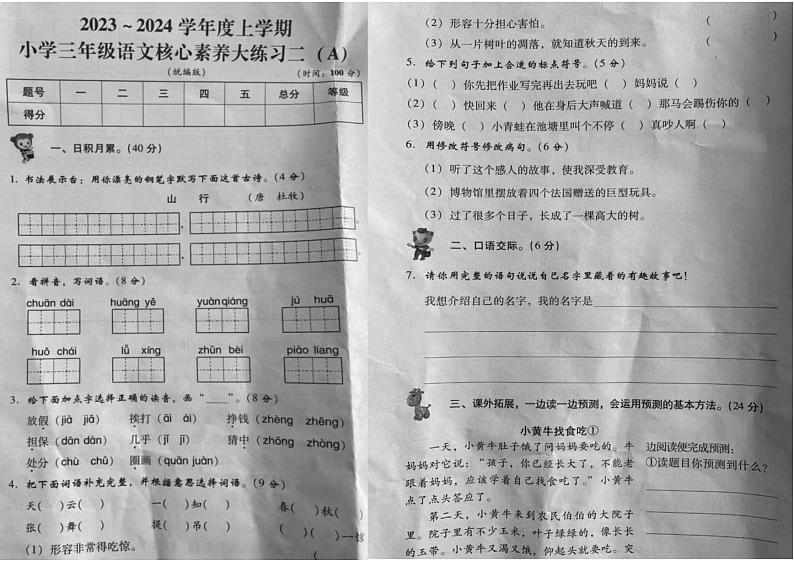 2023～2024学年度上学期
小学三年级语文核心素养大练习二（A）
（统编版）
（时间：100分）
题号 一 二 三 四 五 总分 等级
得分
一、日积月累。(40分)
1. 书法展示台：用你漂亮的钢笔字默写下面这首古诗。(4分)
山 行 （唐 杜牧）
，
。
，
。
2. 看拼音，写词语。(8分)
chuān dài huāng yě yuàn qiáng jú huā
huǒ chái lǚ xíng zhǔn bèi piào liang
3. 给下面加点字选择正确的读音，画“____”。(8分)
放假（jià jiǎ） 挨打（āi ái） 挣钱（zhèng zhēng）
担保（dān dàn） 几乎（jǐ jī） 猜中（zhōng zhòng）
处分（chù chǔ） 圈画（quān juàn）
4. 把下面词语补充完整，并根据意思选择词语。(9分)
天（ ）云（ ） 一（ ）知（ ） 春（ ）秋（ ）
张（ ）舞（ ） 提（ ）吊（ ） （ ）（ ）一惊
(1) 形容非常得吃惊。 （
(2) 形容十分担心害怕。 （ ）
(3) 从一片树叶的凋落，就知道秋天的到来。 （ ）
5. 给下列句子加上合适的标点符号。(5分)
(1)（ ）你先把作业写完再出去玩吧（ ）妈妈说（ ）
(2)（ ）快回来（ ）他在身后大声喊道（ ）那马会踢伤你的（ ）
(3) 傍晚（ ）小青蛙在池塘里叫个不停（ ）真吵人啊（ ）
6. 用修改符号修改病句。(6分)
(1) 听了这个感人的故事，使我深受教育。
(2) 博物馆里摆放着四个法国赠送的巨型玩具。
(3) 过了很多个日子，长成了一棵高大的树。
二、口语交际。(6分)
7. 请你用完整的语句说说自己名字里藏着的有趣故事吧！
我想介绍自己的名字，我的名字是
三、课外拓展，一边读一边预测，会运用预测的基本方法。(24分)
小黄牛找食吃①
一天，小黄牛肚子饿了问妈妈要吃的。牛
妈妈对它说：“孩子，你已经长大了，不能老
跟着妈妈，应该学着自己找食吃了。”小黄牛
点了点头答应了。
第二天，小黄牛来到农民伯伯的大院子
里。院子里有不少玉米，叶子绿绿的，像长长
的玉带。小黄牛又渴又饿，仰起头就要吃。突
边阅读便完成预测：
①读题目你预测到什么？